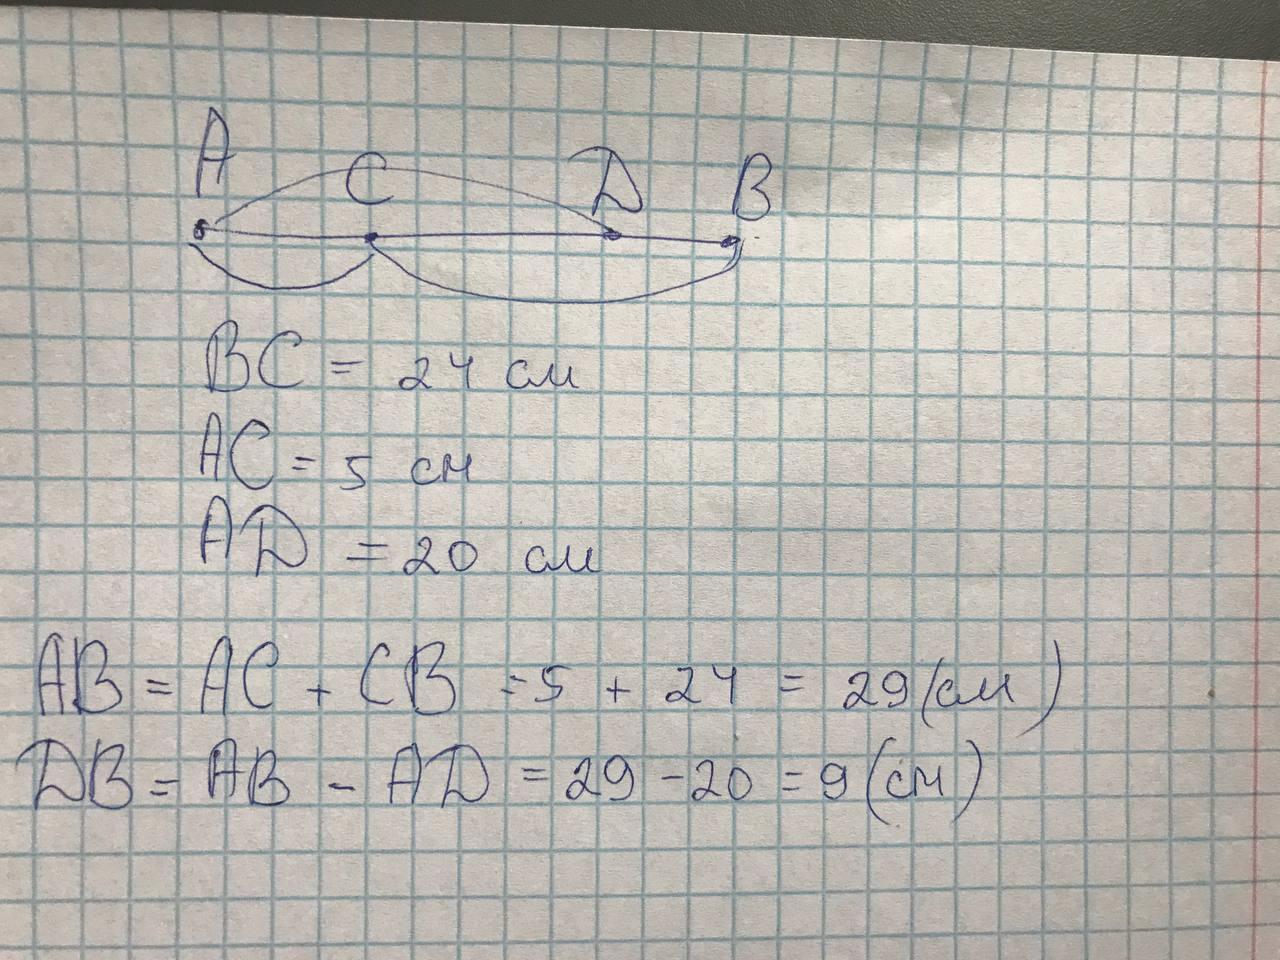 A C D B
BC = 24 см
AC = 5 см
AD = 20 см
AB = AC + CB = 5 + 24 = 29 (см)
DB = AB - AD = 29 - 20 = 9 (см)